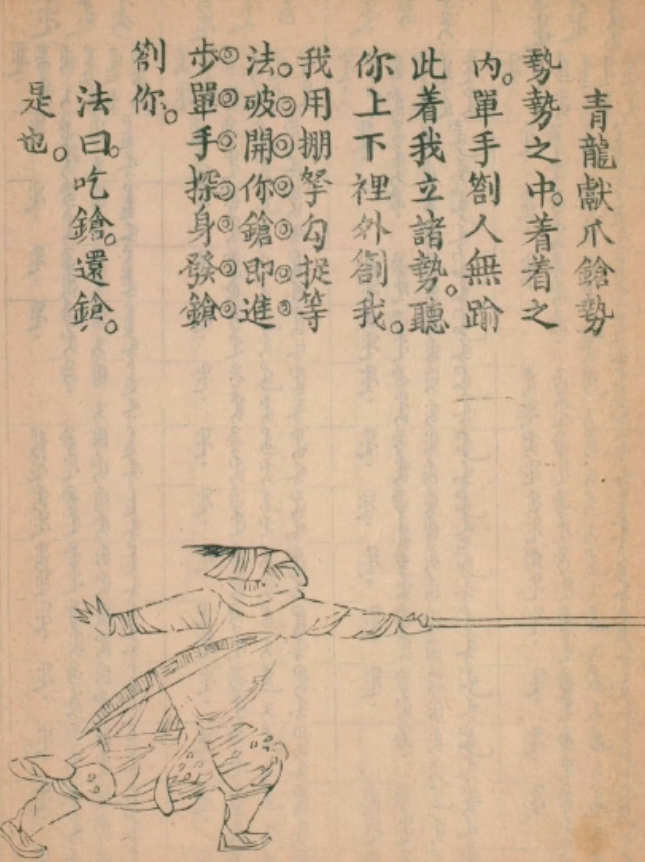 青龍獻爪鎗勢
勢勢之中。着着之
內。單手劄人無踰
此着我立諸勢。聽
你上下裡外劄我。
我用掤拏勾捉等
法。破開你鎗即進
步單手探身發鎗
劄你。
法曰。吃鎗。還鎗。
是也。